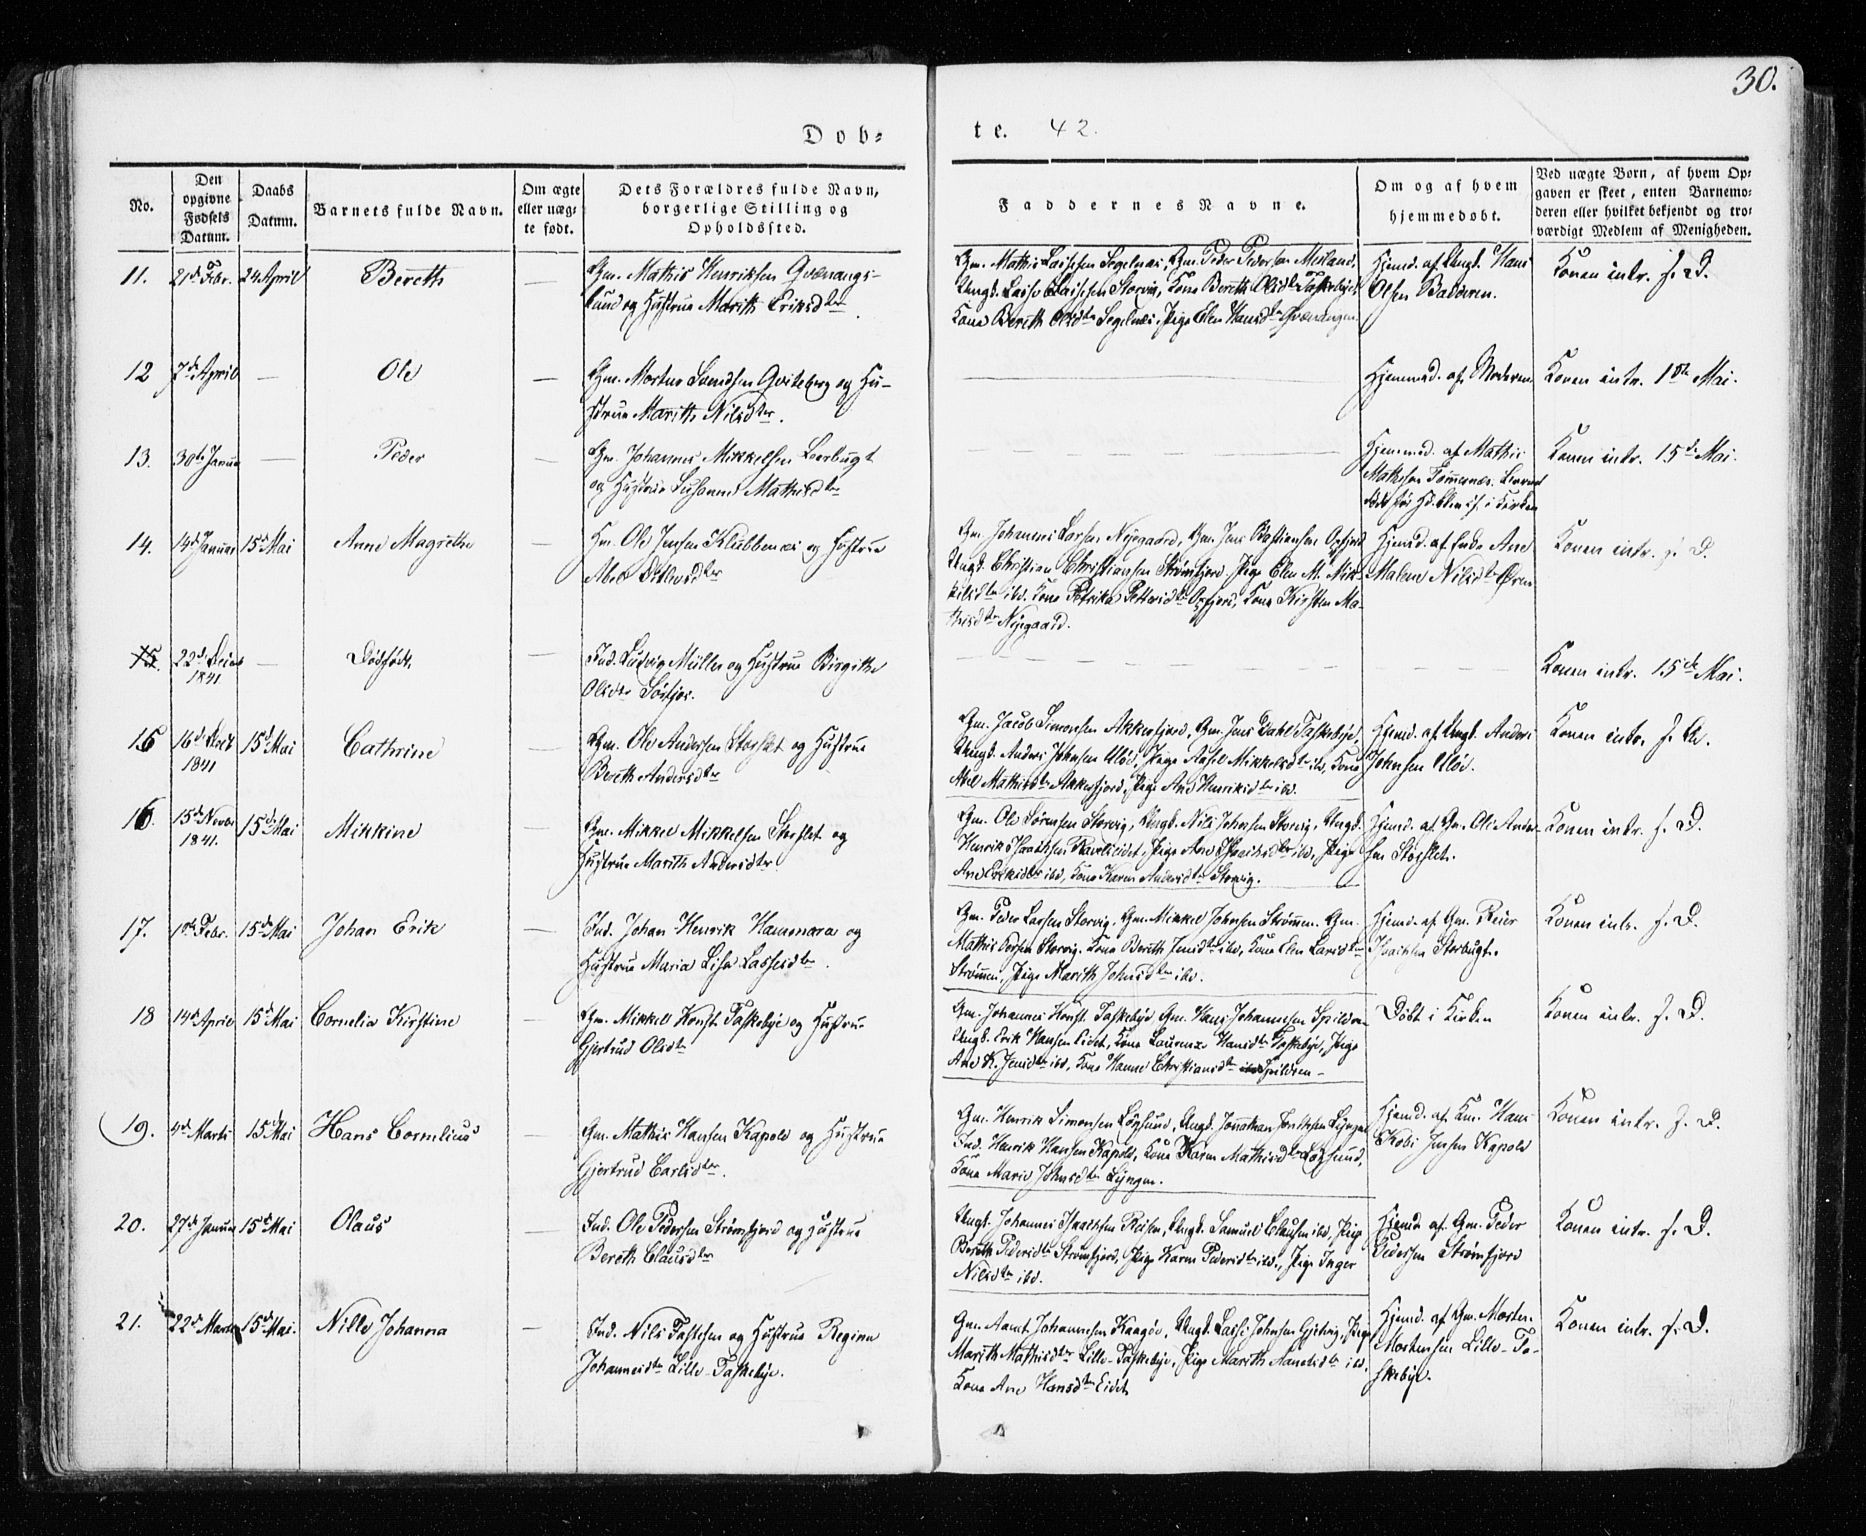 30.
Døb=
te. 42.
No.
Den opgivne Fødsels Datum.
Daabs Datum.
Barnets fulde Navn.
Om ægte eller uægte født.
Dets Forældres fulde Navn, borgerlige Stilling og Opholdssted.
Faddernes Navne.
Om og af hvem hjemmedøbt.
Ved uægte Børn, af hvem Op=
gaven er skeet, enten Barnemo=
deren eller hvilket bekjendt og tro=
værdigt Medlem af Menigheden.
11. 21de Febr. 24 April Bereth — Gm. Mathis Henriksen Qvænangs-
sund og Hustrue Marith Eriksdter.
Gm. Mathis Lassesen Segelnæs, Gm. Peder Pedersen Meiland,
Ungk. Lasse Lassesen Storvig, Kone Bereth Olsdtr Taskebye,
Kone Bereth Olsdtr Segelnæs, Pige Elen Hansdtr Qvænangen
Hjemd. af Ungk. Hans
Olsen Badderen.
Konen intr. s. D.
12 7de April — Ole — Gm. Morten Svendsen Qviteberg og Hu-
strue Marith Nilsdter.
Hjemmed. af Moderen.
Konen intr. 1ste Mai.
13. 30te Januar — Peder — Gm. Johannes Mikkelsen Leerbugt
og Hustrue Susanne Mathisdter
Hjemmed. af Mathis
Mathisen Tømmernæs.
Konen intr. 15de Mai.
14. 14de Januar 15de Mai Anne Magrethe — Gm. Ole Jensen Klubbenæs og Hustrue
Abel Ditlevsdter
Gm. Johannes Larsen Nyegaard, Gm. Jens Bastiansen Oxfjord
Ungk. Christian Christiansen Strømfjord, Pige Elen M. Mik-
kelsdtr ibd. Kone Petrikke Pettersdtr Oxfjord, Kone Kirsten Ma-
thisdtr Nyegaard.
Hjemd. af Enke Ane
Malene Nilsdtr
Konen intr. s. D.
15. 22de 1841 — Dødfødt. — Ind. Ludvig Müller og Hustrue Birgithe
Olsdtr Sørfjor.
Konen intr. 15de Mai.
15 16de Octbr 1841 15de Mai Cathrine — Gm. Ole Andersen Storslet og Hustrue
Bereth Andersdter
Gm. Jacob Simonsen Akkerfjord, Gm. Jens Dahl Taskebye,
Ungk. Anders Johnsen Uløe, Pige Aasel Mikkelsdtr ibd, Kone
Abel Mathisdtr Akkerfjord, Pige Ane Henriksdtr ibd.
Hjemd. af Ungk. Anders
Johnsen Uløe.
Konen intr. s. D.
16. 15de Novbr 1841. 15de Mai Mikkine — Gm. Mikkel Mikkelsen Storslet og
Hustrue Marith Andersdter
Gm. Ole Sørensen Storvig, Ungk. Nils Johnsen Storvig, Ungk.
Henrik Isachsen Kaveleidet, Pige Ane Isachsdtr ibd, Pige
Ane Eriksdtr ibd, Kone Karen Andersdtr Storvig.
Hjemd. af Gm. Ole Ander-
sen Storslet.
Konen intr. s. D.
17. 1ste Febr. 15de Mai Johan Erik — Ind. Johan Henrik Hannara og
Hustrue Maria Lisa Lassesdtr.
Gm. Peder Larsen Storvig, Gm. Mikkel Johnsen Strømmen. Gm.
Mathis Larsen Storvig. Kone Bereth Jensdtr ibd, Kone Elen Larsdtr
Strømmen, Pige Marith Johnsdtr ibd.
Hjemd. af Gm. Reier
Isachsen Storbugt.
Konen intr. s. D.
18 14de April 15de Mai Cornelia Kirstine — Gm. Mikkel Horst Taskebye og Hustrue
Gjertrud Olsdtr
Gm. Johannes Horst Taskebye Gm. Hans Johannesen Spildren
Ungk. Erik Hansen Eidet, Kone Laurenze Hansdtr Taskebye, Pige
Ane K. Jensdtr ibd, Kone Hanne Christiansdtr Spildren —
Døbt i Kirken
Konen intr. s. D.
19. 4de Marts 15de Mai Hans Cornelius — Gm. Mathis Hansen Kapola og Hustrue
Gjertrud Carlsdter.
Gm. Henrik Simonsen Løgsund, Ungk. Jonathan Lyngen
Ind. Henrik Hansen Kapola, Kone Karen Mathisdtr Løgsund,
Kone Marie Johnsdtr Lyngen.
Hjemd. af Gm. Hans
Jensen Kapola
Konen intr. s. D.
20. 27de Januar 15de Mai Olaus — Ind. Ole Pedersen Strømfjord og Hustrue
Bereth Clausdtr
Ungk. Johannes Isachsen Reisen, Ungk. Samuel Clausen ibd, Pige
Bereth Pedersdtr Strømfjord, Pige Karen Pedersdtr ibd., Pige Inger
Nilsdtr ibd.
Hjemd. af Gm. Peder
Pedersen Strømfjord
Konen intr. s. D.
21. 22de Marts 15de Mai. Nille Johanna — Ind. Nils Tostesen og Hustrue Regine
Johannesdtr Lille-Taskebye.
Gm. Aamt Johannesen Kaagøe, Ungk. Lasse Johnsen Gjetvig, Pige
Marith Mathisdtr Lille-Taskebye, Pige Marith Aamtsdtr ibd.
Kone Ane Hansdtr Eidet
Hjemd. af Gm. Morten
Mortensen Lille-Ta-
skebye.
Konen intr. s. D.